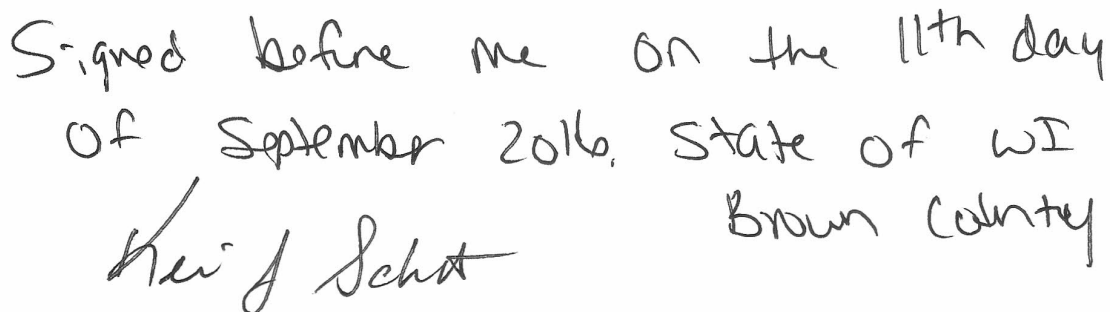 Signed before me on the 11th day
of September 2016. State of WI
Brown County